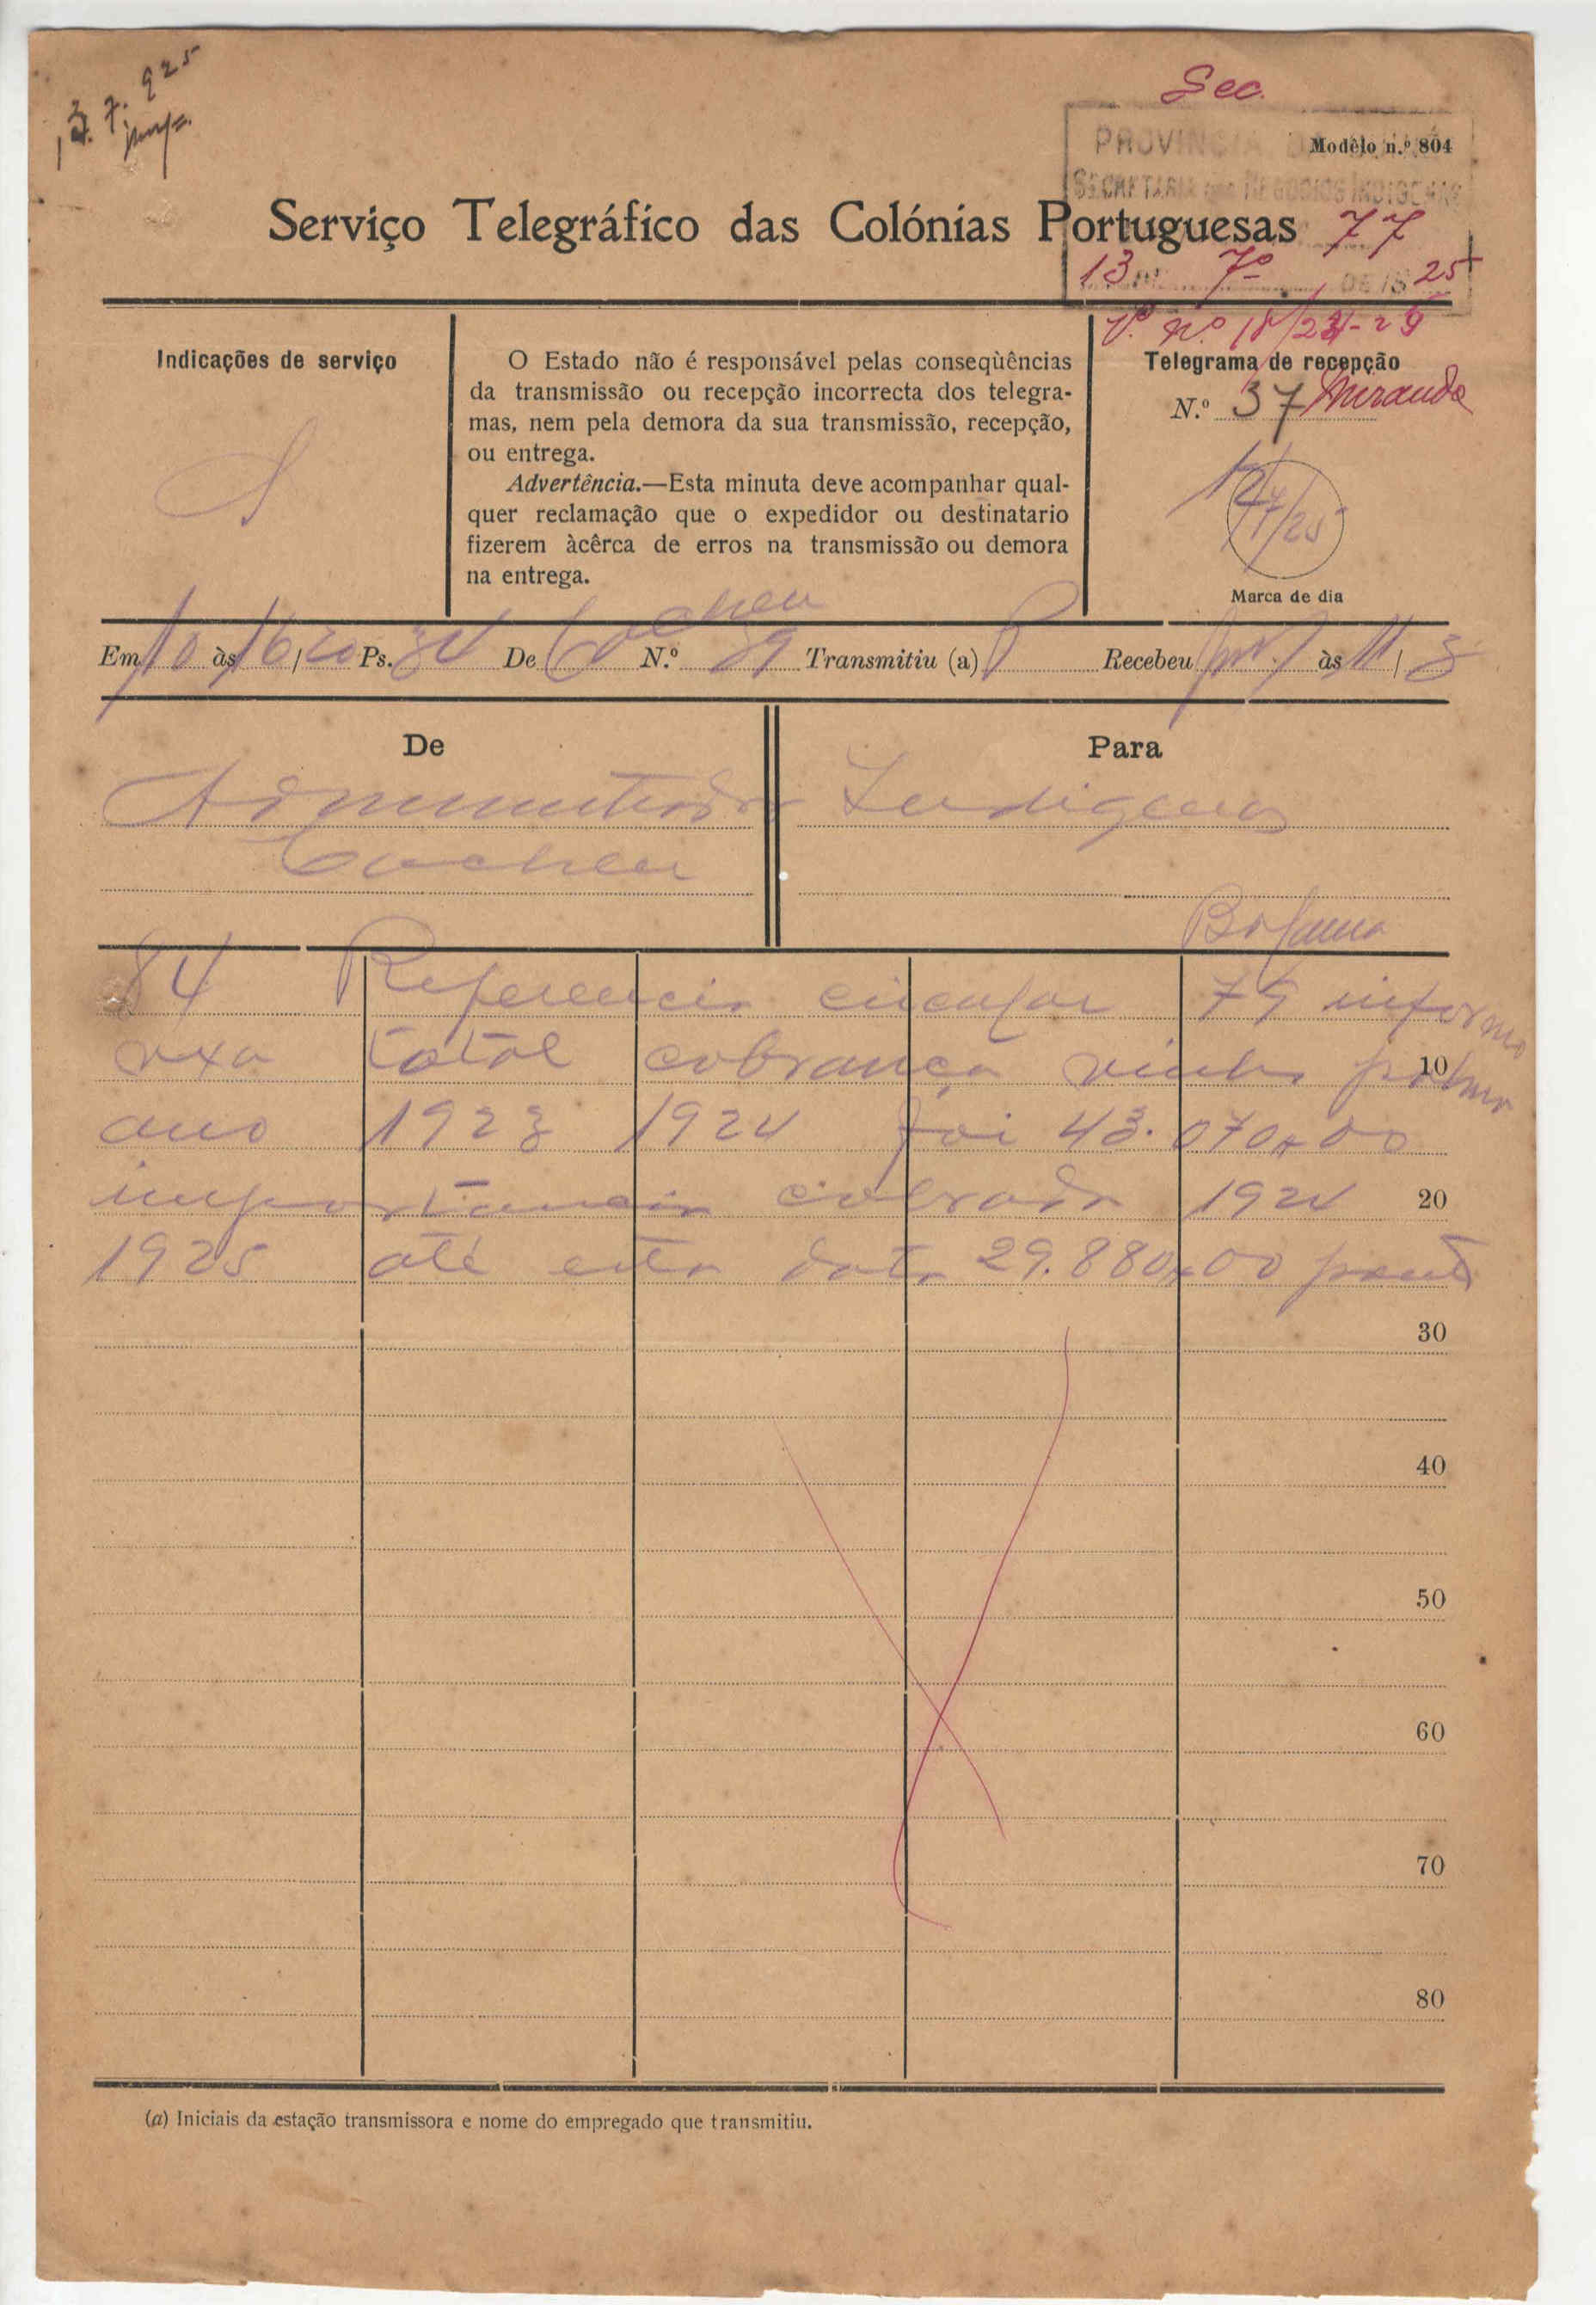 13.7.925
Sec.
PROVINCIA DA GUINÉ
Modêlo n.º 804
SECRETARIA DOS NEGOCIOS INDIGENAS
Serviço Telegráfico das Colónias Portuguesas
77
13 7º DE 19 25
V.º n.º 18/24-25
Indicações de serviço
S
O Estado não é responsável pelas conseqùências
da transmissão ou recepção incorrecta dos telegra-
mas, nem pela demora da sua transmissão, recepção,
ou entrega.
Advertência.—Esta minuta deve acompanhar qual-
quer reclamação que o expedidor ou destinatario
fizerem àcêrca de erros na transmissão ou demora
na entrega.
Telegrama de recepção
N.º 37 Miranda
12/7/25
Marca de dia
Em 10 às 16/20 Ps. De Cacheu N.º 89 Transmitiu (a) P Recebeu às 11/3
De
Administrador
Cacheu
Para
Indigenas
Bolama
84 Referencia circular 79 informo
exa total cobrança vinho palma
ano 1923 1924 foi 43.070,00
10
importancia cobrada 1924
20
1925 até esta data 29.880,00 ponto
30
40
50
60
70
80
(a) Iniciais da estação transmissora e nome do empregado que transmitiu.